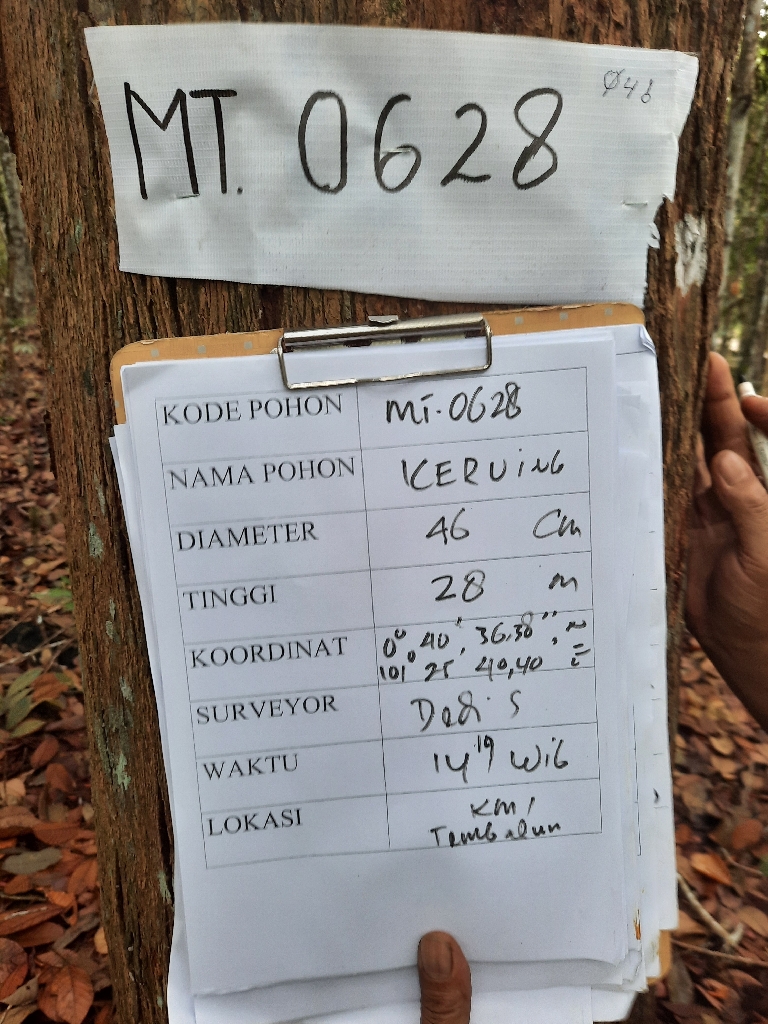 MT. 0628
Ø46
KODE POHON MT. 0628
NAMA POHON KERUING
DIAMETER 46 Cm
TINGGI 28 m
KOORDINAT 0° 40" 36,38", N
101° 25 40,40 E
SURVEYOR Dedi S
WAKTU 14 19 Wib
LOKASI KM 1